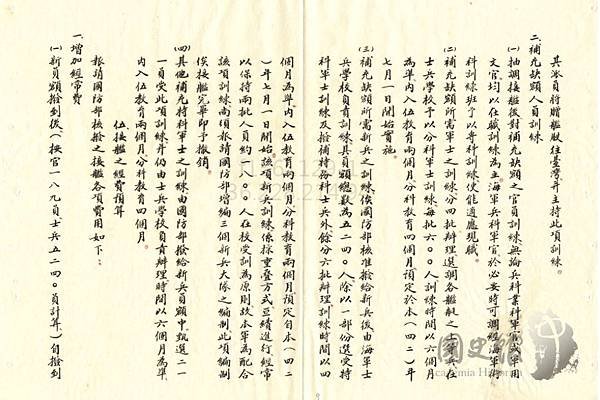 其派員將贈艦駛往臺灣并主持此項訓練。
二、補充缺額人員訓練
(一)抽調接艦後對補充缺額之官員訓練無論兵科業科軍官或軍用
文官均以在職訓練為主海軍兵科軍官於必要時可調經海軍術
科訓練班予以專科訓練使能適應現職。
(二)補充缺額所需軍士之訓練分四批辦理選調各艦艇之士等兵在
士兵學校予以分科軍士訓練每批六〇〇人訓練時間以六個月
為準內入伍教育兩個月分科教育四個月預定於本(四二)年
七月一日開始實施。
(三)補充缺額所需新兵之訓練俟國防部核准撥給新兵後由海軍士
兵學校負責訓練其員額總數為五二四〇人除以一部份選受特
科軍士訓練及撥補特各科士兵外餘分六批辦理訓練時間以四
個月為準內入伍教育兩個月分科教育兩個月預定自本(四二
)年七月一日開始該項新兵訓練係採重疊方式互續進行經常
以保持兩批人員約一八〇〇人在校受訓為原則故本軍為配合
該項訓練而須報請國防部增編三個新兵大隊之編制此項編制
俟接艦完畢即予撤銷。
(四)其他補充特科軍士之訓練由國防部撥給新兵員額中甄選二一
一員受此項訓練并仍由士兵學校負責辦理時間以六個月為準
內入伍教育兩個月分科教育四個月。
伍、接艦之經費預算
報請國防部核撥之接艦各項費用如下:
一、增加經常費
(一)新員額撥到後(按官一八九員士兵五二四〇員計算)自撥到
國史館
Academia Historica